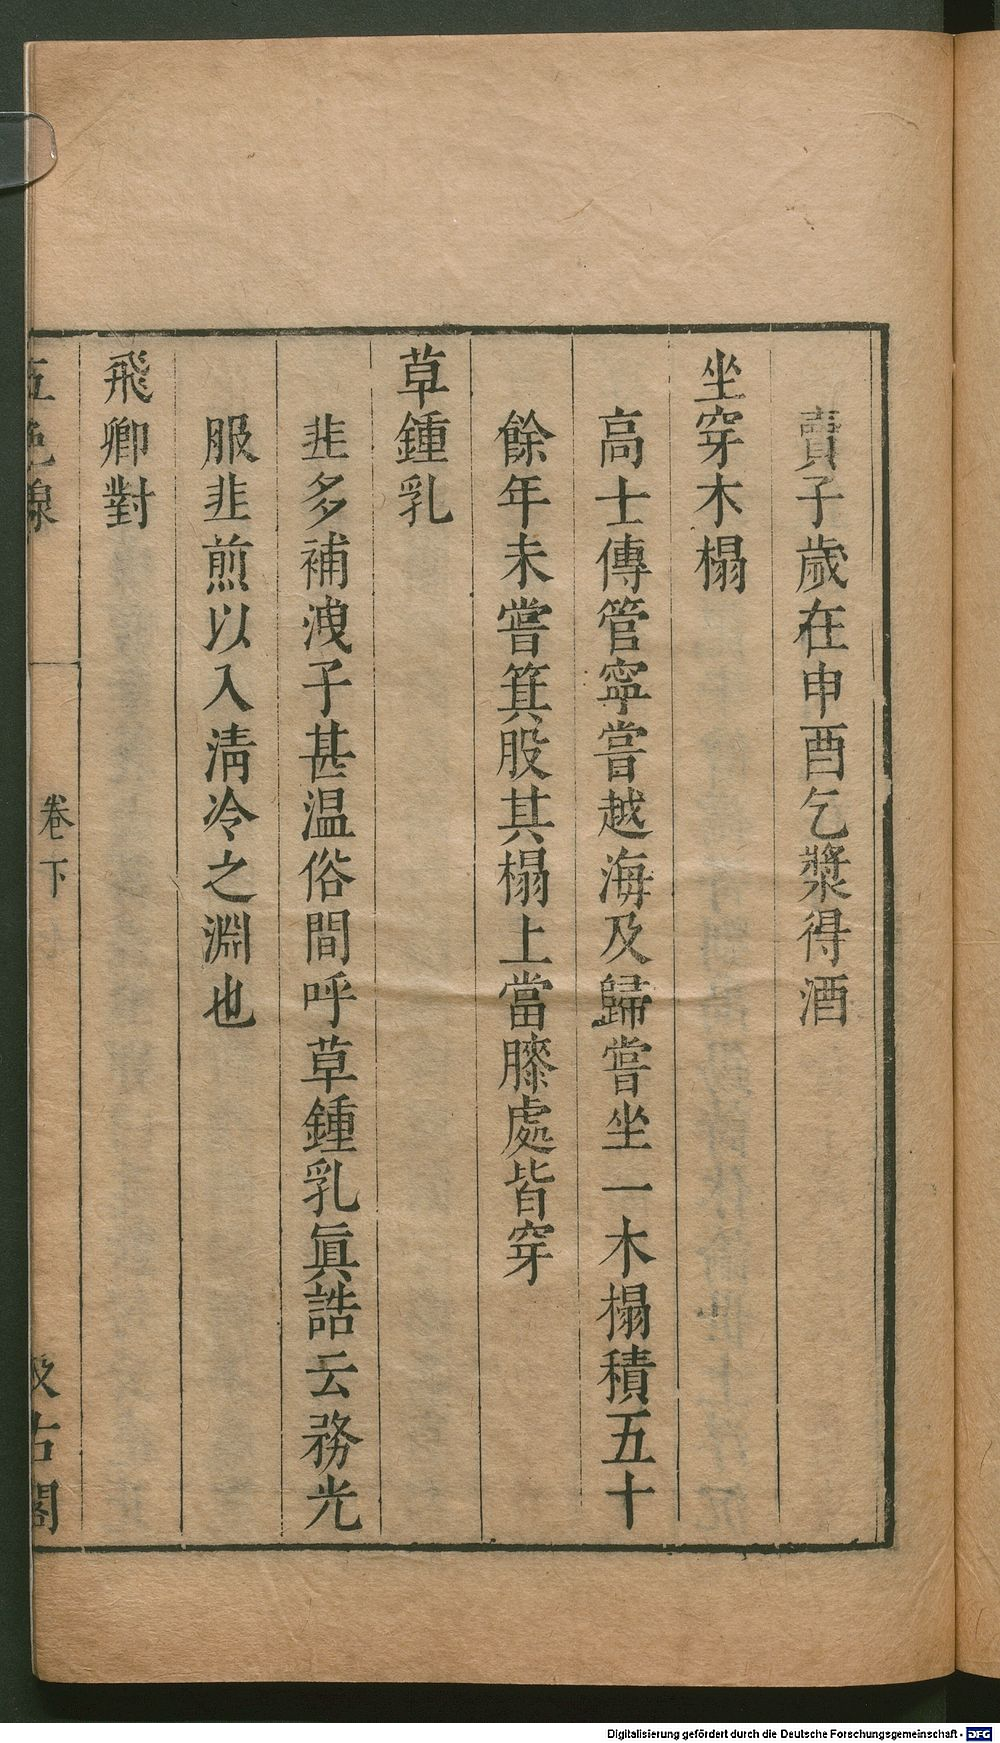 賣子歲在申酉乞漿得酒
坐穿木榻
高士傳管寧嘗越海及歸嘗坐一木榻積五十
餘年未嘗箕股其榻上當膝處皆穿
草鍾乳
韭多補溲子甚温俗間呼草鍾乳眞誥云務光
服韭煎以入清冷之淵也
飛卿對
五色線
卷下
汲古閣
Digitalisierung gefördert durch die Deutsche Forschungsgemeinschaft - DFG